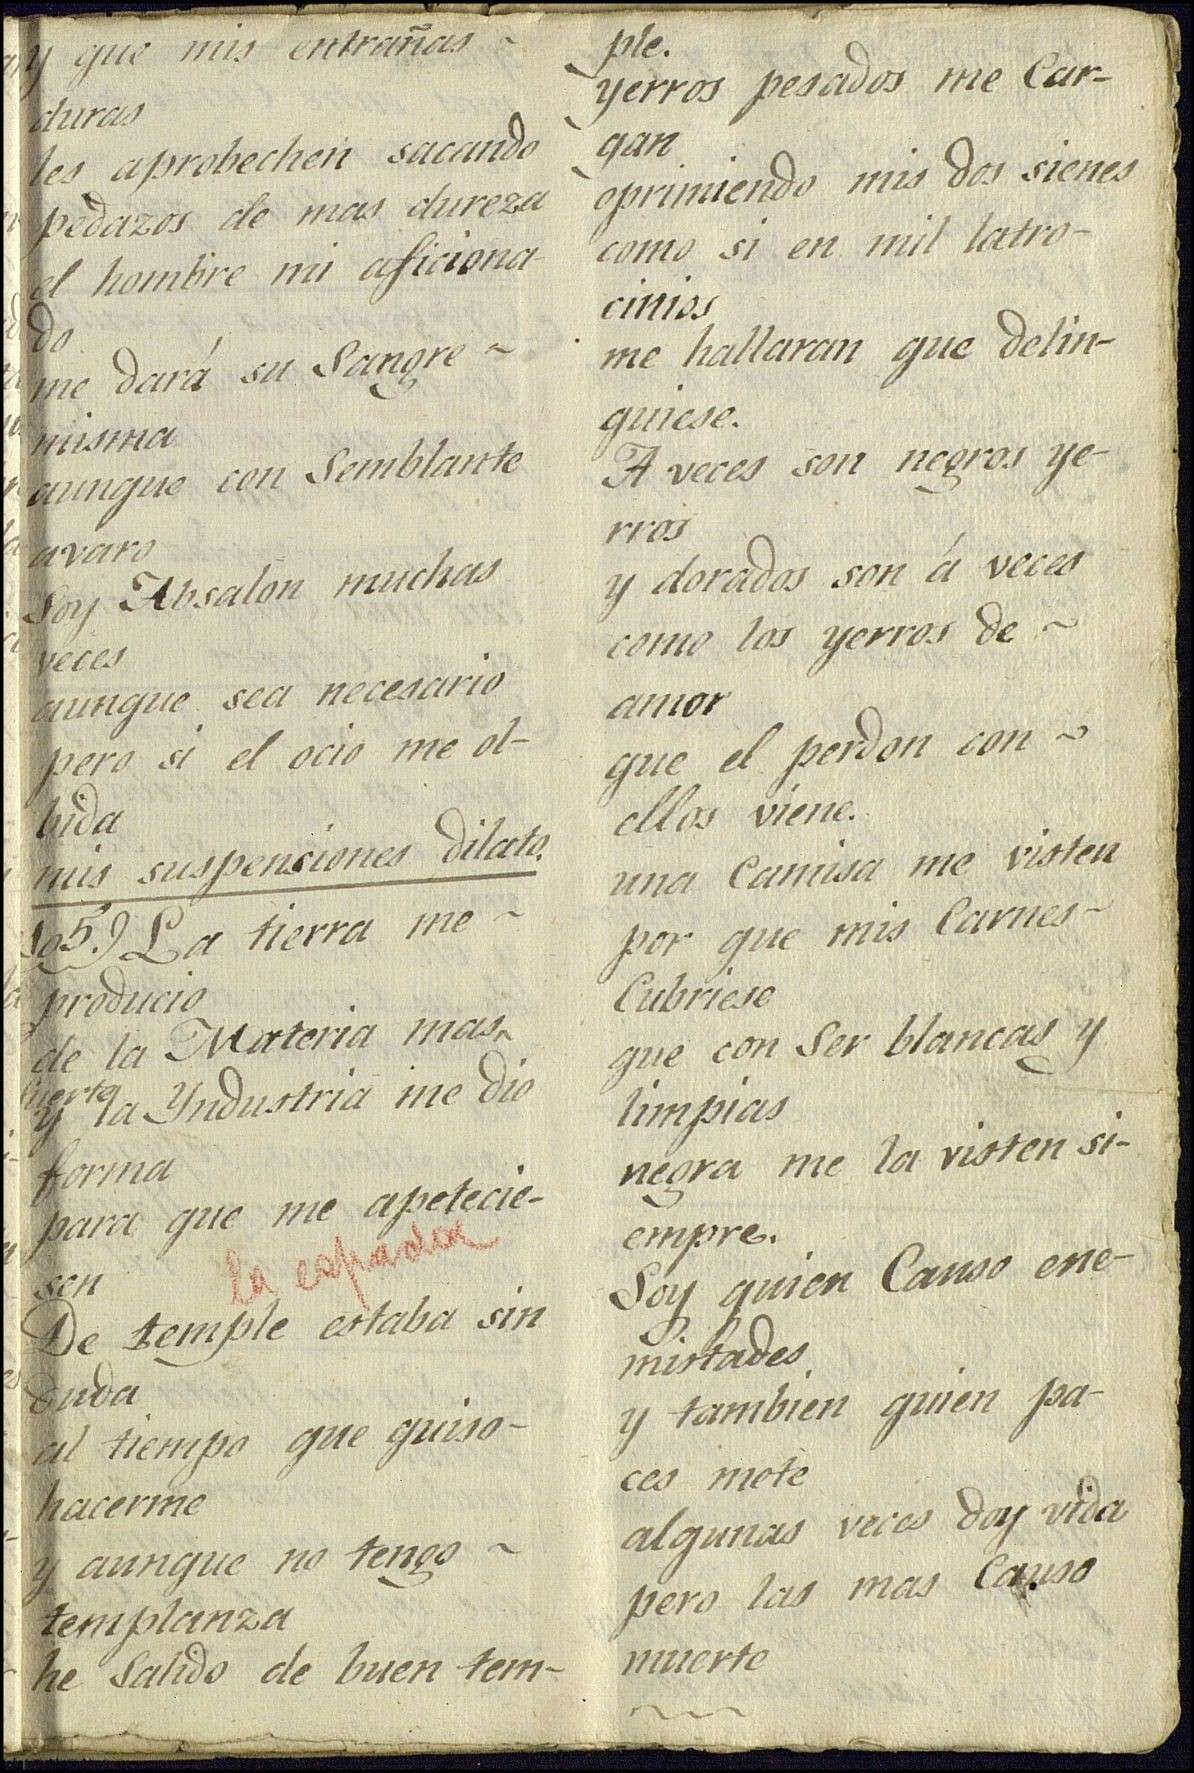 y que mis entrañas ~
duras
les aprobechen sacando
pedazos de mas dureza
el hombre mi aficiona-
do
me dará su Sangre ~
misma
aunque con Semblante
avaro
Soy Absalon muchas
veces
aunque sea necesario
pero si el ocio me ol-
bida
mis suspenciones dilato.
5.) La tierra me ~
producio
de la Materia mas
fuerte
y la Yndustria me dio
forma
para que me apetecie-
sen
la espada
De temple estaba sin
duda
al tiempo que quiso-
hacerme
y aunque no tengo ~
templanza
he Salido de buen tem-
ple.
yerros pesados me Car-
gan
oprimiendo mis dos sienes
como si en mil latro-
cinios
me hallaran que delin-
quiese.
A veces son negros ye-
rros
y dorados son á veces
como los yerros de ~
amor
que el perdon con ~
ellos viene.
una Camisa me visten
por que mis Carnes ~
Cubriese
que con Ser blancas y
limpias
negra me la visten si-
empre.
Soy quien Causo ene-
mistades
y tambien quien pa-
ces mete
algunas veces doy vida
pero las mas Causo
muerte